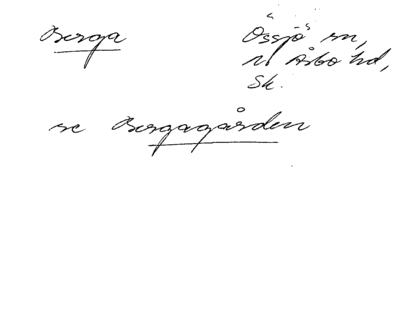 Berga
Össjö sn,
N Åsbo hd,
Sk.
se Bergagården